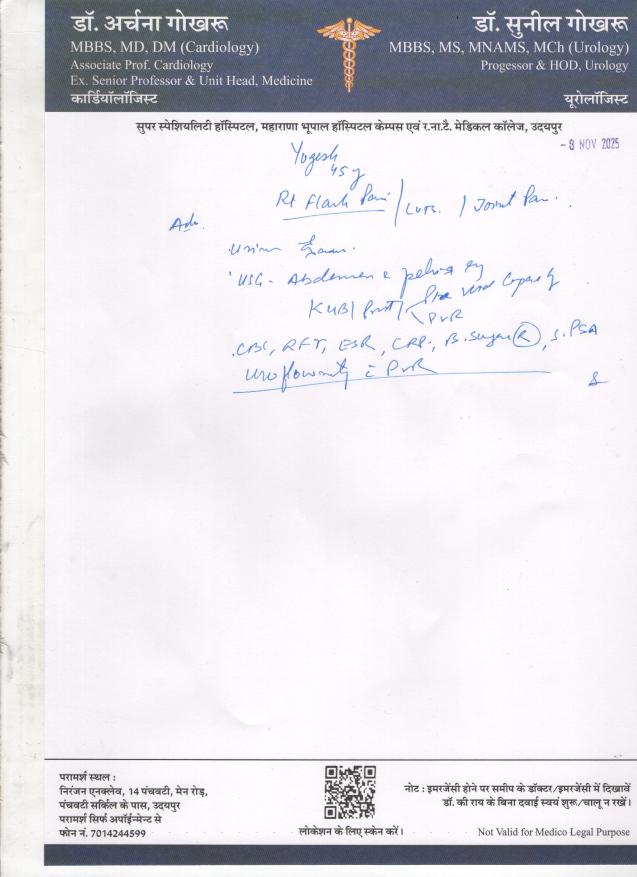 डॉ. अर्चना गोखरू
MBBS, MD, DM (Cardiology)
Associate Prof. Cardiology
Ex. Senior Professor & Unit Head, Medicine
कार्डियॉलॉजिस्ट
डॉ. सुनील गोखरू
MBBS, MS, MNAMS, MCh (Urology)
Progessor & HOD, Urology
यूरोलॉजिस्ट
सुपर स्पेशियलिटी हॉस्पिटल, महाराणा भूपाल हॉस्पिटल केम्पस एवं र.ना.टै. मेडिकल कॉलेज, उदयपुर
- 8 NOV 2025
Yogesh
45 y
Rt Flank Pain / LUTS. / Joint Pain.
Adv.
Urine Exam.
USG - Abdomen & pelvis
KUB / Prost / Pre void Capacity
PVR
CBC, RFT, ESR, CRP, B. Sugar (R), S. PSA
Uroflowmetry c PVR
परामर्श स्थल :
निरंजन एनक्लेव, 14 पंचवटी, मेन रोड़,
पंचवटी सर्किल के पास, उदयपुर
परामर्श सिर्फ अपॉईन्मेन्ट से
फोन नं. 7014244599
लोकेशन के लिए स्केन करें।
नोट : इमरजेंसी होने पर समीप के डॉक्टर/इमरजेंसी में दिखावें
डॉ. की राय के बिना दवाई स्वयं शुरू/चालू न रखें।
Not Valid for Medico Legal Purpose